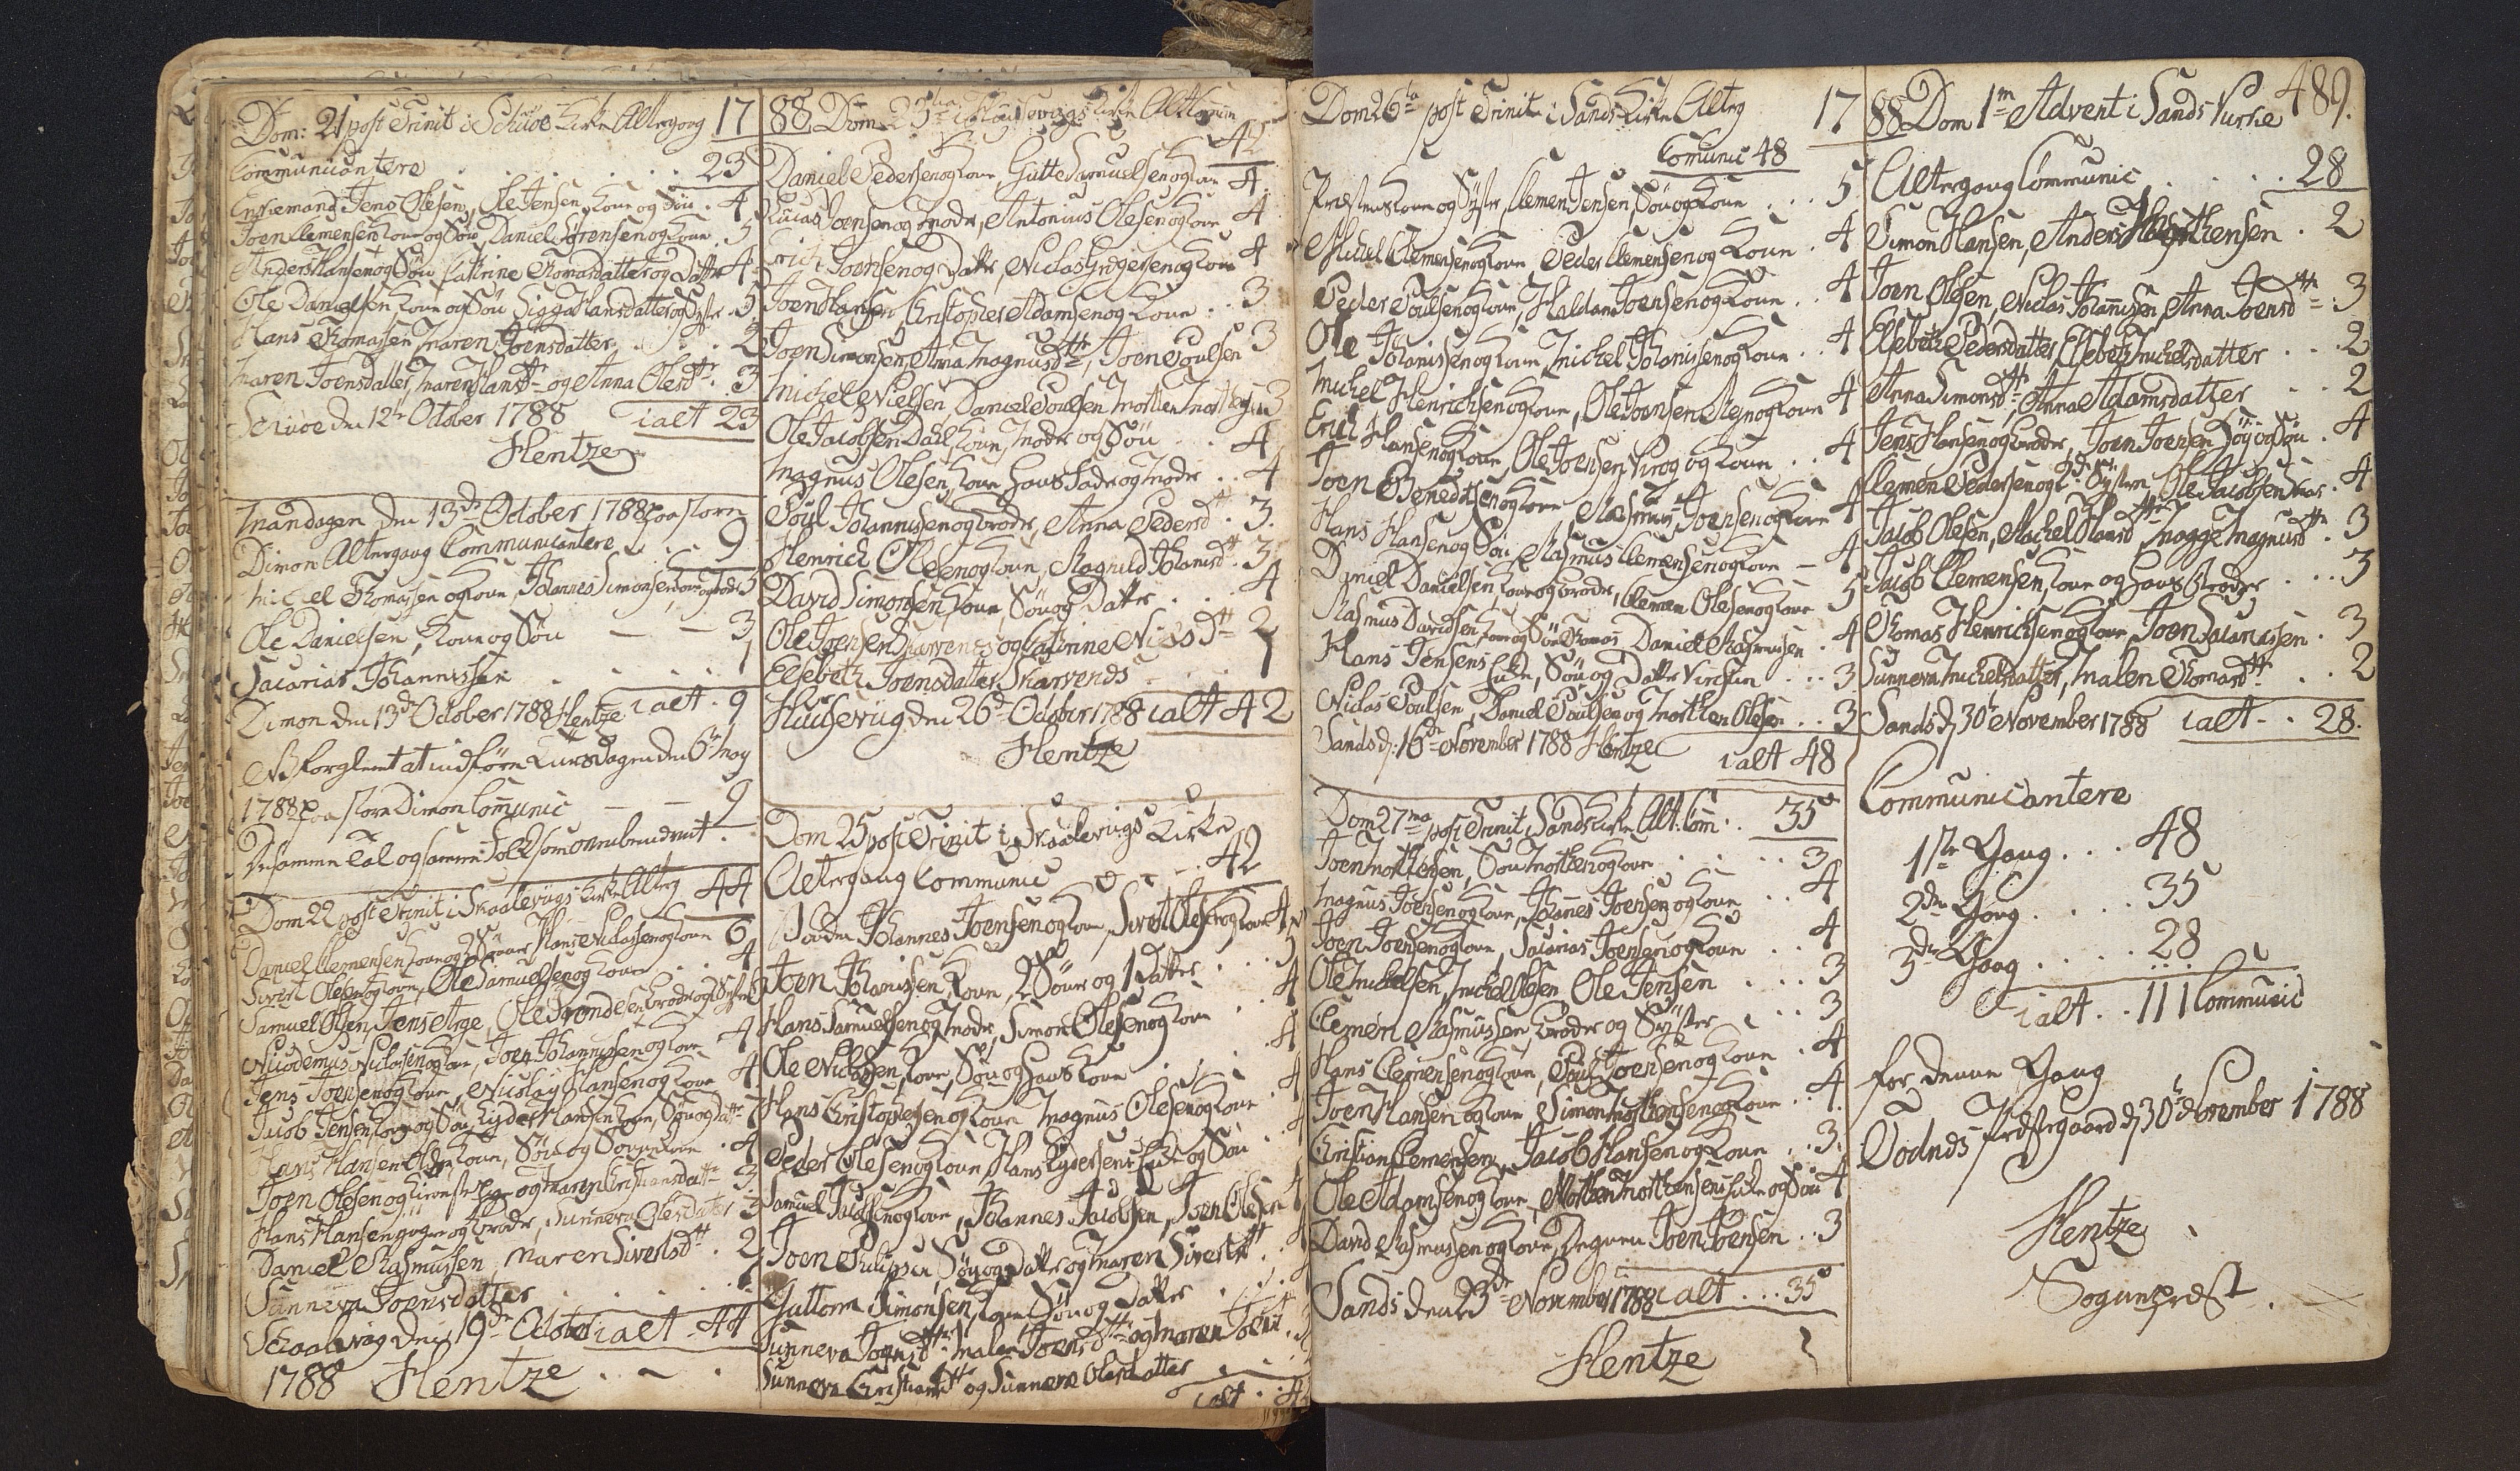 Dom: 21 post Trinit i Schúoe Kirke Altergang 17
Communicantere . . . . . 23
Enkemand Jens Olesen, Ole Jensen Kone og Søn . 4
Joen Clemensen Kone og Søn, Daniel Sørensen og Kone 5
Anders Hansen og Søn Catrine Thomasdatter og Datter 4
Ole Danielsen Kone og Søn Sigga Hansdatter og Syster . 5
Hans Thomassen, Maren Joensdatter . . . 2
Maren Joensdatter, Maren Hansdtr og Anna Olesdtr . 3
Scúoe den 12te October 1788 ialt 23
Hentze
Mandagen den 13de October 1788 paa Store
Dimon Altergang Communicantere . . . 9
Michel Thomassen og Kone, Johannes Simonsen Kone og Broder 5
Ole Danielsen, Kone og Søn — — 3
Sacarias Johannessen . . . . 1
Dimon den 13de October 1788 Hentze ialt . 9
NB forglemt at indføre Tirsdagen den 6te May
1788 paa Store Dimon Comunic — — 9
De samme Tal og samme Folk som ovenbenævnt .
Dom 22 post Trinit i Skaalevigs Kirke Altrg 44
Daniel Clemensen Kone og 2 Sønner Hans Niclassen og Kone 6
Sivert Olesen og Kone, Ole Samuelsen og Kone . . 4
Samuel Olsen, Jens Arge, Ole Trondesen Broder og Syster
Nicodemus Niclassen og Kone, Joen Johannessen og Kone 4
Jens Joensen og Kone, Nicolay Hansen og Kone 4
Jacob Jensen Kone og Søn, Eyder Hansen Kone, Søn og Datter 7
Hans Hansen Older Kone, Søn og Søns Kone . 4
Joen Olesen og og Maren Christiansdatter 3
Hans Hansen og Broder, Sunneva Olesdatter 3
Daniel Rasmussen, Maren Sivertsdtr . 2
Sunneva Joensdatter . . . . . 1
Schaalevig den 19de October ialt 44
1788 Hentze . ~ .
88 Dom 23tia i Húusevigs Kirke Alt Comm
42
Daniel Pedersen og Kone Gutte Samuelsen og Kone 4
Lucas Joensen og Moder, Antonius Olesen og Kone 4
Erich Joensen og Datter, Niclas Gregersen og Kone 4
Joen Hansen Christopher Adamsen og Kone . 3
Joen Simonsen, Anna Magnusdtr, Joen Poulsen 3
Michel Nielsen, Daniel Poulsen Morten Mortensen 3
Ole Jacobsen Dahl Kone, Moder og Søn . . 4
Magnus Olesen, Kone hans Fader og Moder . . 4
Poul Johannessen og Broder, Anna Pedersdtr . 3
Henrich Olesen og Kone, Ragnild Johansdtr . 3
David Simonsen Kone, Søn og Datter . . . 4
Ole Joensen Skarvenes og Catrine Niclsdtr 2
Elsebeth Joensdatter Skarvenes . . . 1
Húusevúg den 26de October 1788 ialt 42
Hentze
Dom 25 post Trinit i Skaalevúgs Kirke
Altergang Communic . . . 42
Johannes Joensen og Kone, Sivert Olesen og Kone 4
Joen Johanissen, Kone, 2 Sønner og 1 Datter . . . 5
Hans Samuelsen og Moder, Simon Olesen og Kone . . 4
Ole Niclassen, Kone, Søn og hans Kone . . . 4
Hans Christophersen og Kone Magnus Olesen og Kone 4
Peder Olesen og Kone, Hans Eydersens Enke og Søn . 4
Samuel Jacobsen og Kone, Johannes Jacobsen, Joen Olesen 4
Joen Philipsen, Søn og Datter og Maren Sivertsdtr . 4
Guttorm Simonsen, Kone Søn og Datter . . .
Sunneva Joensdtr Malen Joensdtr og Maren
Sunneva Christiansdtr og Sunneva Olesdatter
ialt . . 4
Dom 26ta post Trinit i Sands Kirke Altrg 17
Comunic 48
Præstens Kone og Syster, Clemen Jensen, Søn og Kone . . . 5
Michel Clemensen og Kone, Peder Clemensen og Kone . 4
Peder Poulsen og Kone, Haldan Joensen og Kone . . 4
Ole Johanissen og Kone, Michel Johanissen og Kone . . 4
Michel Henrichsen og Kone, Ole Joensen og Kone 4
Erich Hansen og Kone, Ole Joensen og Kone . . 4
Joen Benedictsen og Kone Rasmus Joensen og Kone 4
Hans Hansen og Søn, Rasmus Clemensen og Kone — 4
Daniel Danielsen, Kone og Broder, Clemen Olesen og Kone 5
Rasmus Davidsen Kone og Søn Thomas Daniel Rasmussen . 4
Hans Jensens Enke, Søn og Datter . . . 3
Niclas Poulsen, Daniel Poulsen og Morten Olesen . . 3
Sands d: 16de November 1788 Hentze
ialt 48
Dom 27ma post Trinit i Sands Kirke Alt: Com: . . 35
Joen Mortensen, Søn Morten og Kone . . . 3
Magnus Joensen og Kone, Johannes Joensen og Kone . . 4
Joen Joensen og Kone, Sacarias Joensen og Kone . . 4
Ole Mickelsen, Michel Olesen Ole Jensen . . . 3
Clemen Rasmussen, Broder og Syster . . . 3
Hans Clemensen og Kone, Poul Joensen og Kone . 4
Joen Hansen og Kone Simon Mortensen og Kone . . 4
Christian Clemensen, Jacob Hansen og Kone . . 3.
Ole Adamsen og Kone, Morten Mortensens Enke og Søn 4
David Rasmussen og Kone, Degnen Joen Joensen . . 3
Sands den 23de November 1788 ialt . . . 35
Hentze
88 Dom 1m Advent i Sands Kurke 489.
Altergang Communic . . . . 28
Simon Hansen, Anders Mortensen . 2
Joen Olesen, Niclas Johannissen, Anna Joensdtr . 3
Elsebeth Pedersdatter, Elsebeth Mickelsdatter . . . 2
Anna Simonsdtr, Anna Adamsdatter . . 2
Jens Hansen og Broder, Joen Joensen Høj og Søn . 4
Clemen Pedersen og 2de Systre, Ole Jacobsen . 4
Jacob Olesen, Rachel Hansdtr, Magge Magnusdtr . 3
Jacob Clemensen, Kone og hans Broder . . . 3
Thomas Henrichsen og Kone, Joen Sacariassen . 3
Sunneva Mickelsdatter, Malen Thomasdtr . . 2
Sands d: 30te November 1788 ialt - . 28.
Communicantere
1ste Gang . . . 48
2den Gang . . . . 35
3die Gang . . . . . 28
ialt . . 111 Communic
for denne Gang
Todnæs Præstegaard d: 30te November 1788
Hentze
Sognepræst .